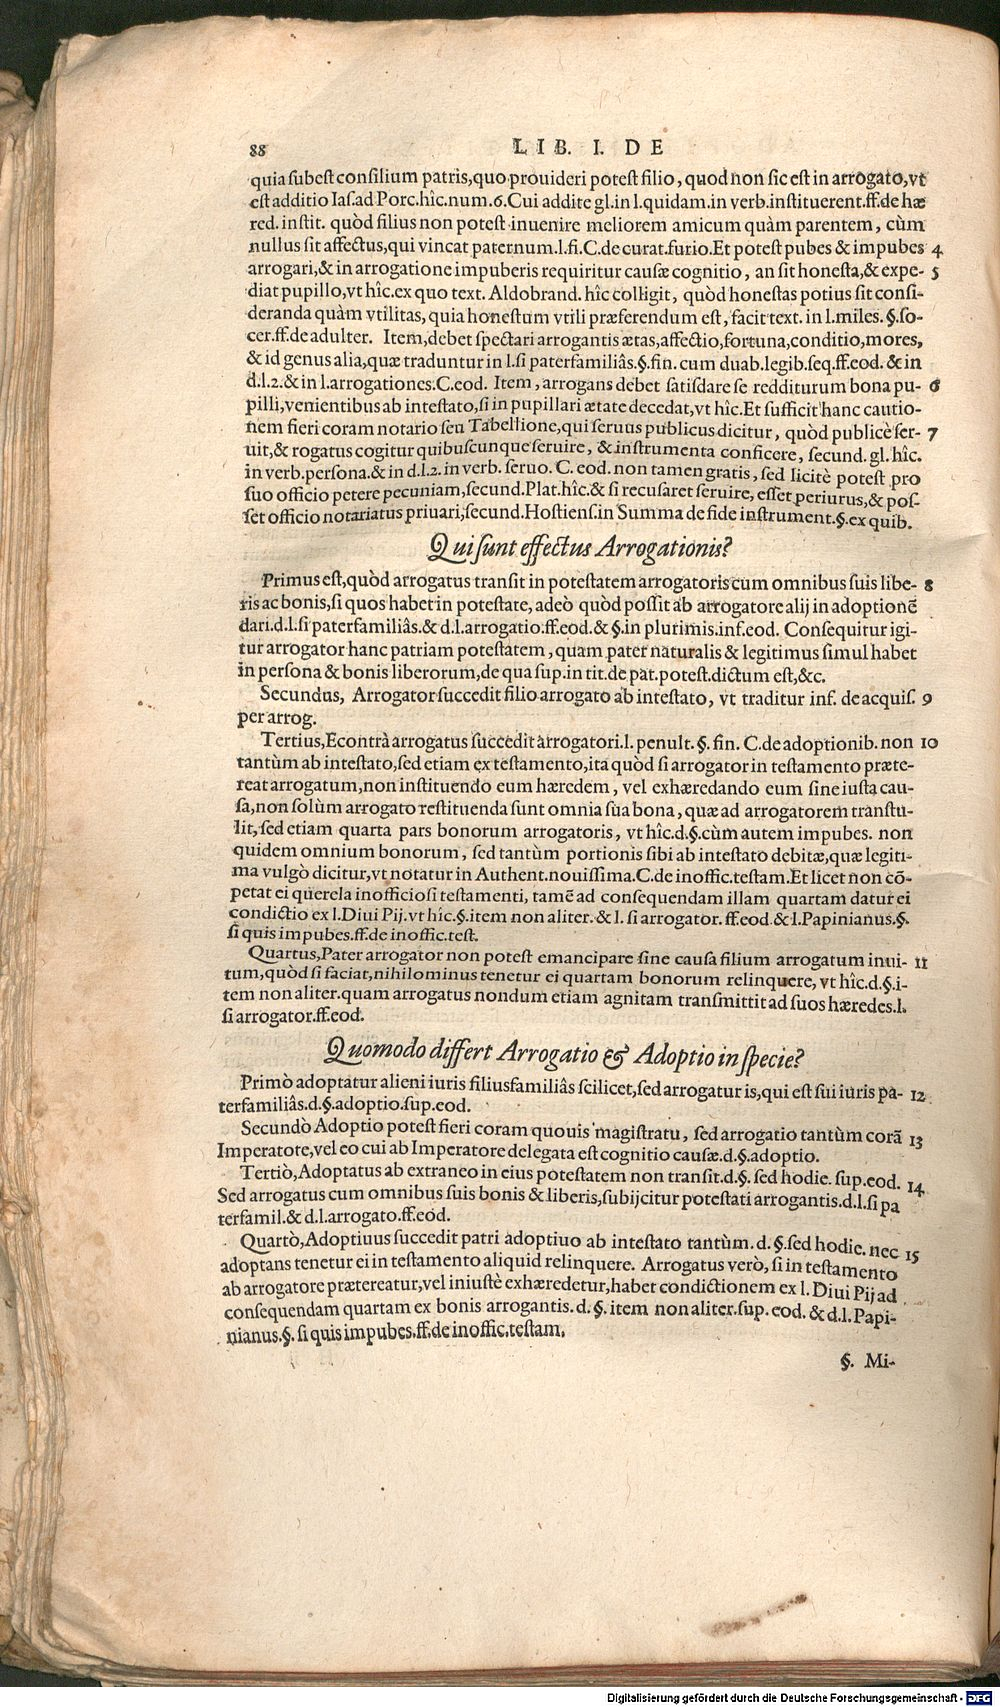 88 LIB. I. DE
quia subest consilium patris, quo prouideri potest filio, quod non sic est in arrogato, vt
est additio Ias. ad Porc. hîc. num. 6. Cui addite gl. in l. quidam. in verb. instituerent. ff. de hæ
red. instit. quòd filius non potest inuenire meliorem amicum quàm parentem, cùm
nullus sit affectus, qui vincat paternum. l. fi. C. de curat. furio. Et potest pubes & impubes 4
arrogari, & in arrogatione impuberis requiritur causæ cognitio, an sit honesta, & expe- 5
diat pupillo, vt hîc. ex quo text. Aldobrand. hîc colligit, quòd honestas potius sit consi-
deranda quàm vtilitas, quia honestum vtili præferendum est, facit text. in l. miles. §. so-
cer. ff. de adulter. Item, debet spectari arrogantis ætas, affectio, fortuna, conditio, mores,
& id genus alia, quæ traduntur in l. si paterfamiliâs. §. fin. cum duab. legib. seq. ff. eod. & in
d. l. 2. & in l. arrogationes. C. eod. Item, arrogans debet satisdare se redditurum bona pu- 6
pilli, venientibus ab intestato, si in pupillari ætate decedat, vt hîc. Et sufficit hanc cautio-
nem fieri coram notario seu Tabellione, qui seruus publicus dicitur, quòd publicè ser- 7
uit, & rogatus cogitur quibuscunque seruire, & instrumenta conficere, secund. gl. hîc.
in verb. persona. & in d. l. 2. in verb. seruo. C. eod. non tamen gratis, sed licitè potest pro
suo officio petere pecuniam, secund. Plat. hîc. & si recusaret seruire, esset periurus, & pos-
set officio notariatus priuari, secund. Hostiens. in Summa de fide instrument. §. ex quib.
Qui sunt effectus Arrogationis?
Primus est, quòd arrogatus transit in potestatem arrogatoris cum omnibus suis libe- 8
ris ac bonis, si quos habet in potestate, adeò quòd possit ab arrogatore alij in adoptionẽ
dari. d. l. si paterfamiliâs. & d. l. arrogatio. ff. eod. & §. in plurimis. inf. eod. Consequitur igi-
tur arrogator hanc patriam potestatem, quam pater naturalis & legitimus simul habet
in persona & bonis liberorum, de qua sup. in tit. de pat. potest. dictum est, &c.
Secundus, Arrogator succedit filio arrogato ab intestato, vt traditur inf. de acquis. 9
per arrog.
Tertius, Econtrà arrogatus succedit arrogatori. l. penult. §. fin. C. de adoptionib. non 10
tantùm ab intestato, sed etiam ex testamento, ita quòd si arrogator in testamento præte-
reat arrogatum, non instituendo eum hæredem, vel exhæredando eum sine iusta cau-
sa, non solùm arrogato restituenda sunt omnia sua bona, quæ ad arrogatorem transtu-
lit, sed etiam quarta pars bonorum arrogatoris, vt hîc. d. §. cùm autem impubes. non
quidem omnium bonorum, sed tantùm portionis sibi ab intestato debitæ, quæ legiti-
ma vulgò dicitur, vt notatur in Authent. nouissima. C. de inoffic. testam. Et licet non cõ-
petat ei querela inofficiosi testamenti, tamẽ ad consequendam illam quartam datur ei
condictio ex l. Diui Pij. vt hîc. §. item non aliter. & l. si arrogator. ff. eod. & l. Papinianus. §.
si quis impubes. ff. de inoffic. test.
Quartus, Pater arrogator non potest emancipare sine causa filium arrogatum inui- 11
tum, quòd si faciat, nihilominus tenetur ei quartam bonorum relinquere, vt hîc. d. §. i-
tem non aliter. quam arrogatus nondum etiam agnitam transmittit ad suos hæredes. l.
si arrogator. ff. eod.
Quomodo differt Arrogatio & Adoptio in specie?
Primò adoptatur alieni iuris filiusfamiliâs scilicet, sed arrogatur is, qui est sui iuris pa- 12
terfamiliâs. d. §. adoptio. sup. eod.
Secundò Adoptio potest fieri coram quouis magistratu, sed arrogatio tantùm corã 13
Imperatote, vel eo cui ab Imperatore delegata est cognitio causæ. d. §. adoptio.
Tertiò, Adoptatus ab extraneo in eius potestatem non transit. d. §. sed hodie. sup. eod. 14
Sed arrogatus cum omnibus suis bonis & liberis, subijcitur potestati arrogantis. d. l. si pa
terfamil. & d. l. arrogato. ff. eod.
Quartò, Adoptiuus succedit patri adoptiuo ab intestato tantùm. d. §. sed hodie. nec 15
adoptans tenetur ei in testamento aliquid relinquere. Arrogatus verò, si in testamento
ab arrogatore prætereatur, vel iniustè exhæredetur, habet condictionem ex l. Diui Pij ad
consequendam quartam ex bonis arrogantis. d. §. item non aliter. sup. eod. & d. l. Papi-
nianus. §. si quis impubes. ff. de inoffic. testam.
§. Mi-
Digitalisierung gefördert durch die Deutsche Forschungsgemeinschaft - DFG